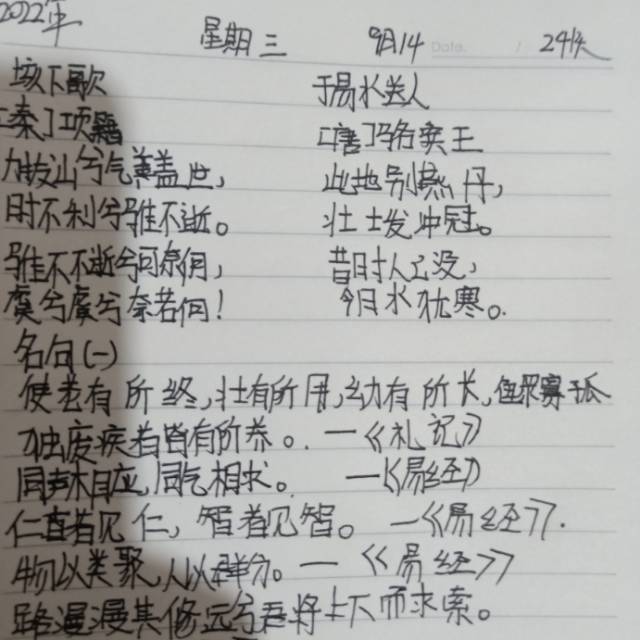 2022年 星期三 9月14 Date. / 24侠
垓下歌 于易水送人
[秦]项羽 [唐]骆宾王
力拔山兮气盖世, 此地别燕丹,
时不利兮骓不逝。 壮士发冲冠。
骓不不逝兮可奈何, 昔日时人已没,
虞兮虞兮奈若何! 今日水犹寒。
名句(一)
使老有所终,壮有所用,幼有所长,鳏寡孤
独废疾者皆有所养。—《礼记》
同声相应,同气相求。—《易经》
仁者见仁,智者见智。—《易经》.
物以类聚,人以群分。—《易经》
路漫漫其修远兮吾将上下而求索。